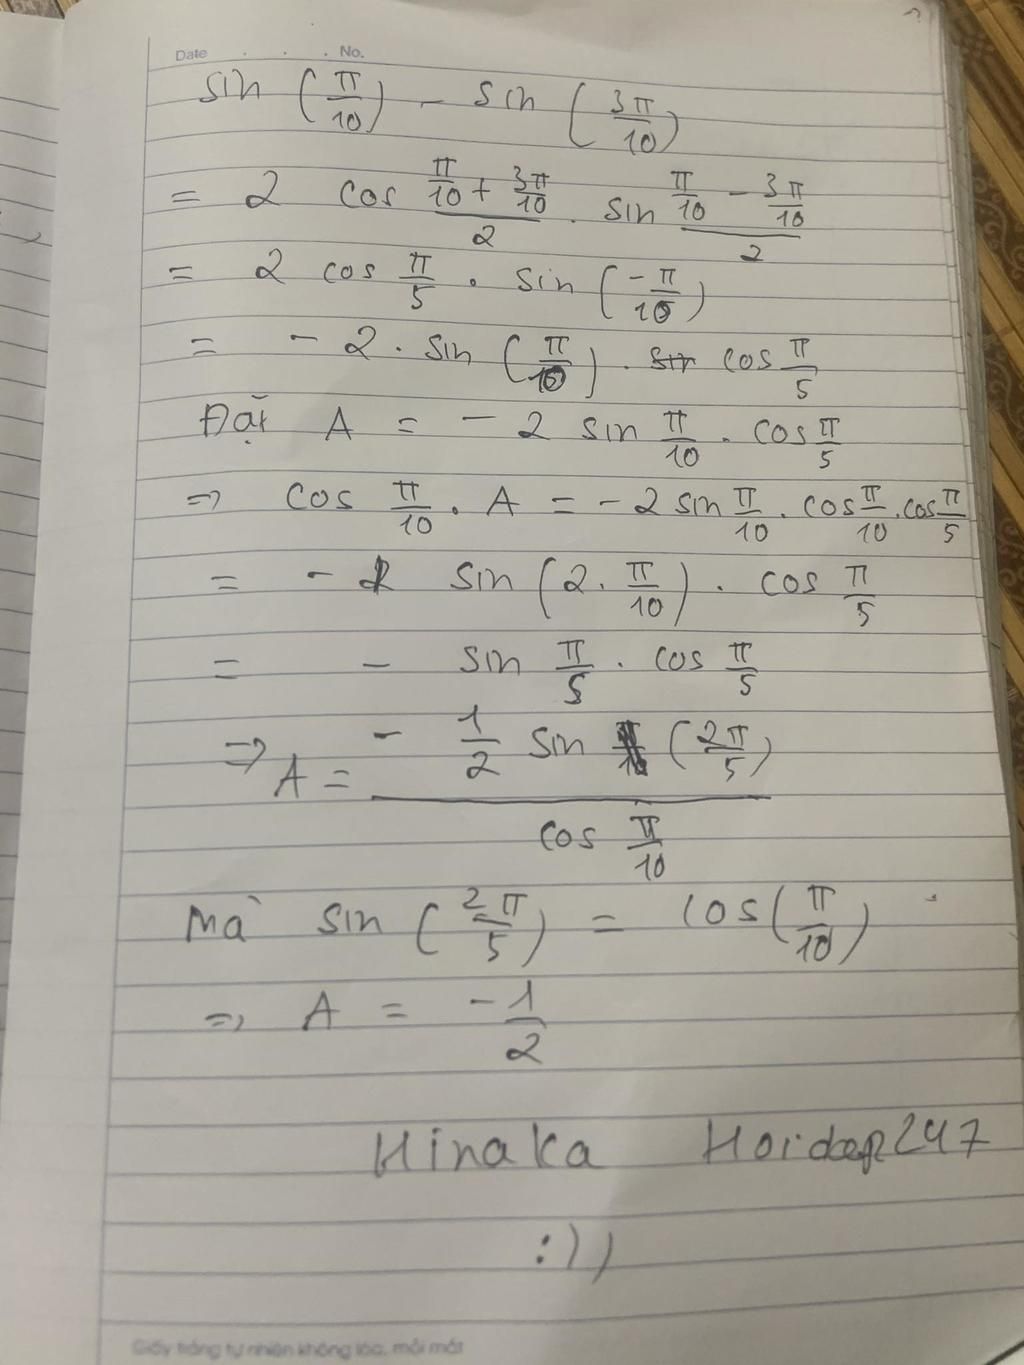 Date . . . No.
sin (π/10) - sin (3π/10)
= 2 cos (π/10 + 3π/10)/2 . sin (π/10 - 3π/10)/2
= 2 cos π/5 . sin (-π/10)
= - 2 . sin (π/10) . cos π/5
Đặt A = - 2 sin π/10 . cos π/5
=> cos π/10 . A = - 2 sin π/10 . cos π/10 . cos π/5
= - sin (2 . π/10) . cos π/5
= - sin π/5 . cos π/5
=> A = (- 1/2 sin (2π/5)) / (cos π/10)
Mà sin (2π/5) = cos (π/10)
=> A = -1/2
Hinaka Hoidap247
:))
Giấy trắng tự nhiên không lóa, mỏi mắt